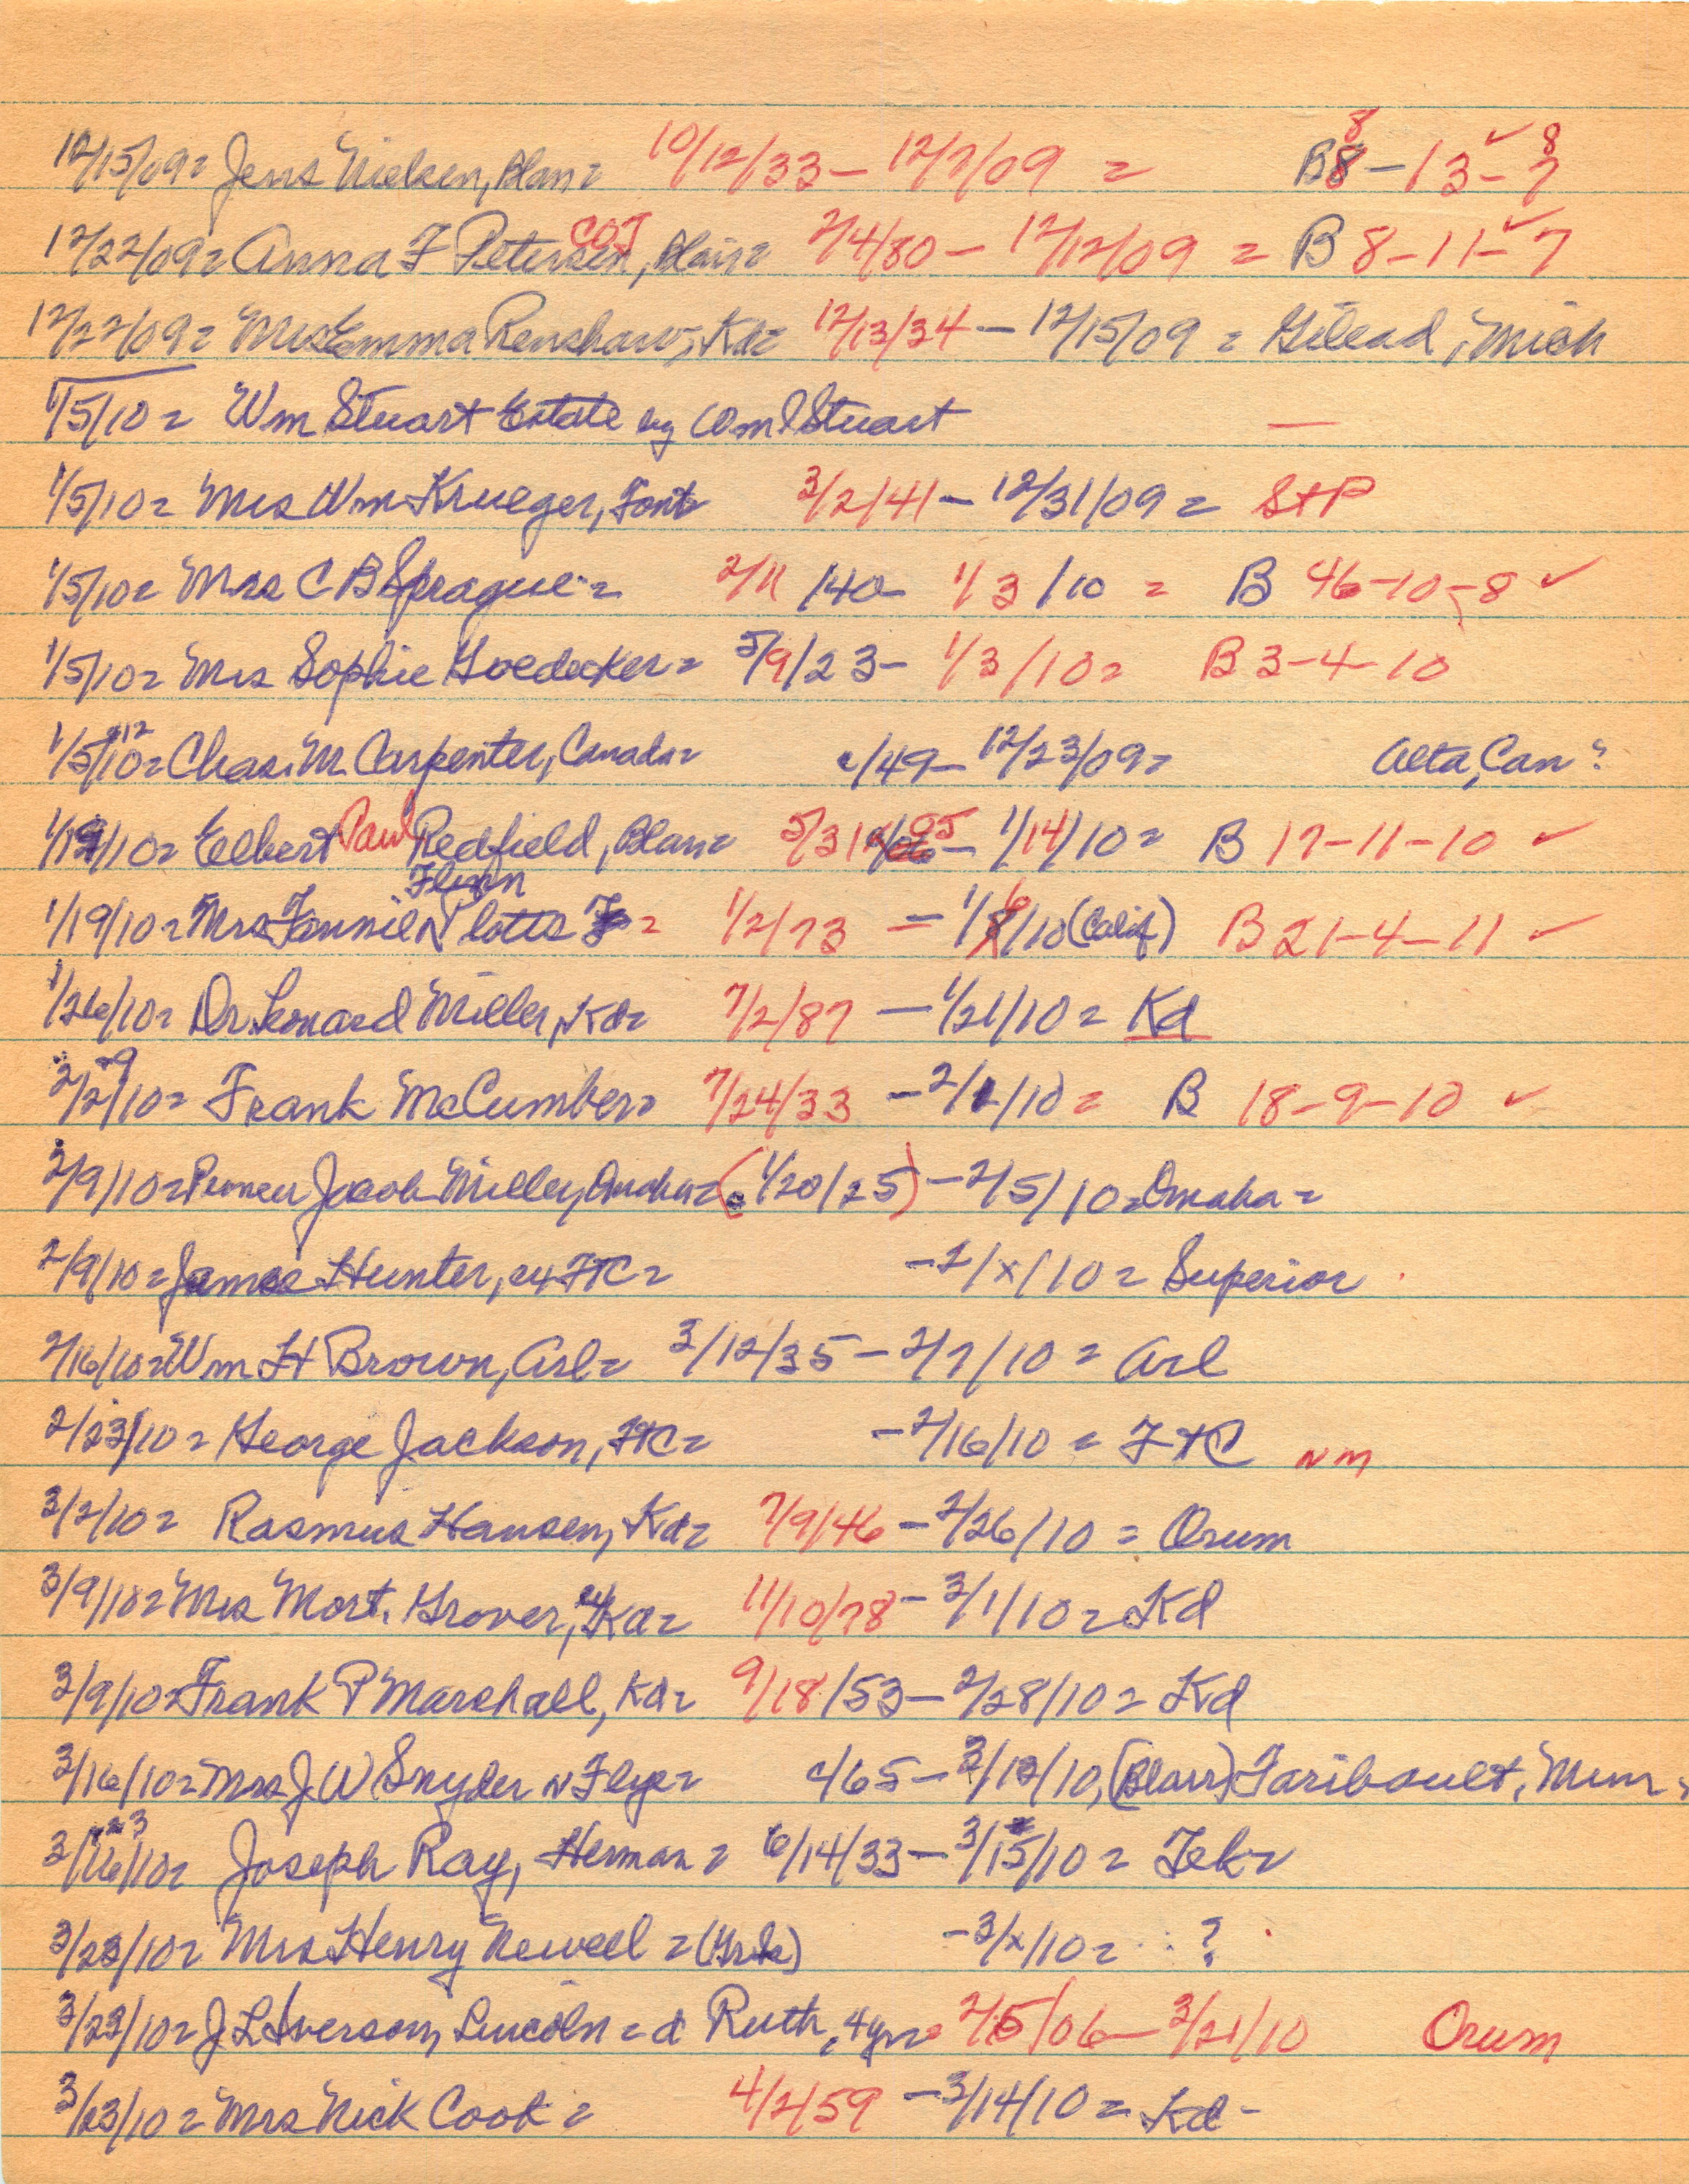 12/15/09= Jens Nielsen, Blair= 10/12/33 – 12/7/09 = B 8 – 13 – 8 ✓
12/22/09= Anna F Petersen, Blair= 2/4/80 – 12/12/09 = B 8–11–7 ✓
12/22/09= Mrs Emma Renshaw, Kd= 12/13/34 – 12/15/09 = Gilead, Mich
1/5/10= Wm Stuart Estate by Wm Stuart —
1/5/10= Mrs Wm Krueger, Font 3/2/41 – 12/31/09 = StP
1/5/10= Mrs C B Sprague = 2/11/40 – 1/3/10 = B 46–10–8 ✓
1/5/10= Mrs Sophie Goedecker= 5/9/23 – 1/3/10= B 3–4–10
1/12/10= Chas. M Carpenter, Canada= c/49 – 12/23/09= Alta, Can?
1/19/10= Elbert Paul Redfield, Blair= 5/31/05 – 1/14/10= B 17–11–10 ✓
1/19/10= Mrs Fannie Flynn N lotts = 1/2/73 – 1/6/10 (Calif) B 21–4–11 ✓
1/26/10= Dr Leonard Miller, Kd= 7/2/87 – 1/21/10= Kd
2/9/10= Frank McCumber= 7/24/33 – 2/1/10= B 18–9–10 ✓
2/9/10= Pioneer Jacob Miller, Omaha= (1/20/25) – 2/5/10= Omaha=
2/9/10= James Hunter, ex FTC= – 2/x/10= Superior
2/16/10= Wm H Brown, Arl= 3/12/35 – 2/7/10= Arl
2/23/10= George Jackson, FTC= – 2/16/10= FTC NM
3/2/10= Rasmus Hansen, Kd= 7/9/46 – 2/26/10= Orum
3/9/10= Mrs Mort. Grover, ex Kd= 11/10/78 – 3/1/10= Kd
3/9/10= Frank P Marshall, Kd= 9/18/53 – 2/28/10= Kd
3/16/10= Mrs J W Snyder N Flye= c/65 – 3/12/10, (Blair) Faribault, Minn=
3/23/10= Joseph Ray, Herman= 6/14/33 – 3/15/10= Tek=
3/23/10= Mrs Henry Newell = – 3/x/10= ?
3/23/10= J L Iverson, Lincoln= d Ruth, 4yr= 2/5/06 – 3/21/10 Orum
3/23/10= Mrs Nick Cook= 4/2/59 – 3/14/10= Kd –